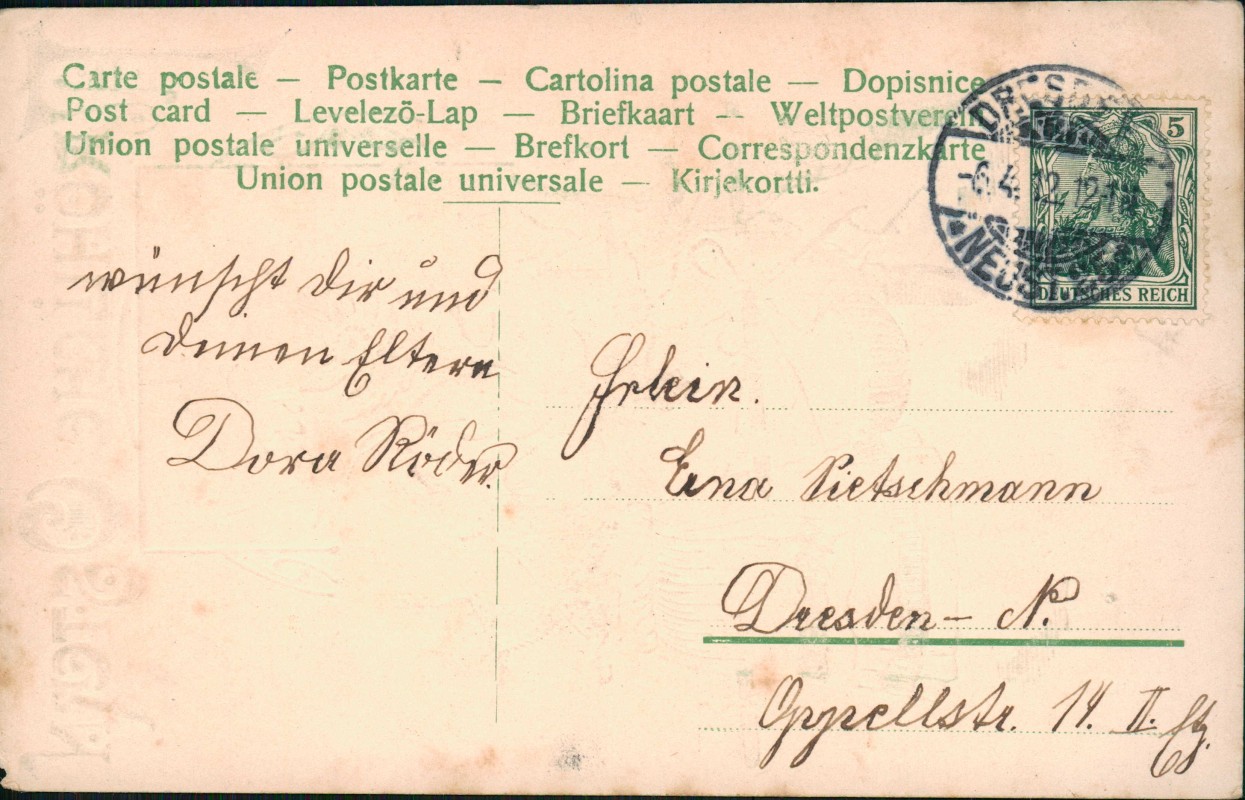 Carte postale — Postkarte — Cartolina postale — Dopisnice
Post card — Levelezõ-Lap — Briefkaart — Weltpostverein
Union postale universelle — Brefkort — Correspondenzkarte
Union postale universale — Kirjekortti.
DRESDEN
6.4.12.12-1
NEUST
5
DEUTSCHES REICH
wünscht Dir und
Deinen Eltern
Dora Röder.
Frlein.
Erna Pietschmann
Dresden - N.
Oppellstr. 14. II.